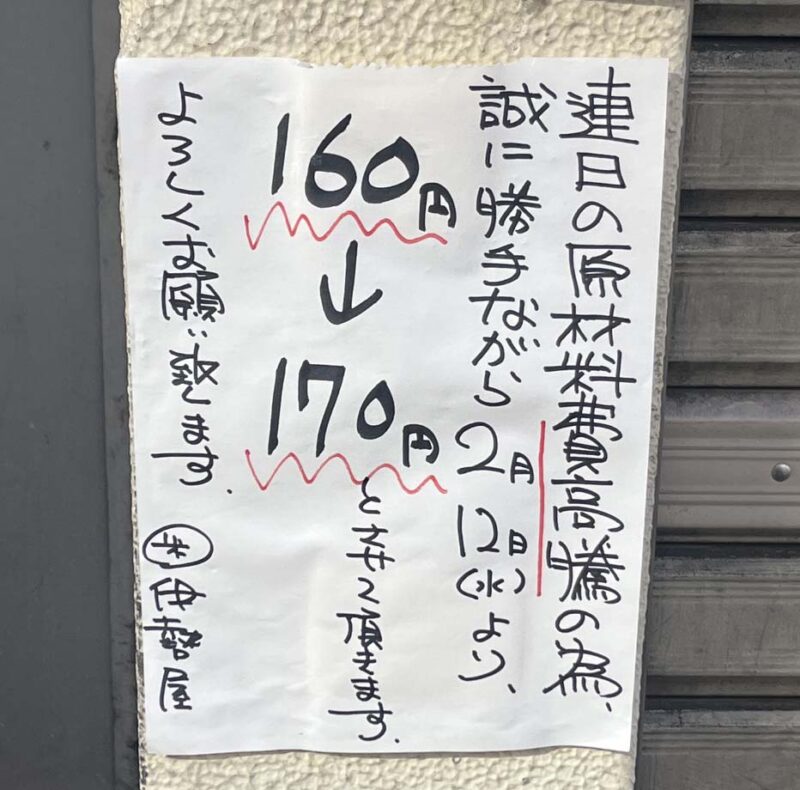 連日の原材料費高騰の為、
誠に勝手ながら2月12日(水)より、
160円
↓
170円
とさせて頂きます。
よろしくお願い致します。
伊勢屋